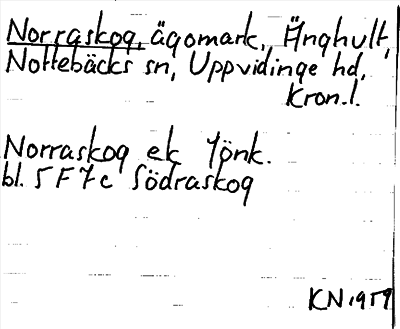 Norraskog, ägomark, Änghult,
Nottebäcks sn, Uppvidinge hd,
Kron.l.
Norraskog ek Jönk.
bl. 5F7c Södraskog
KN 1959